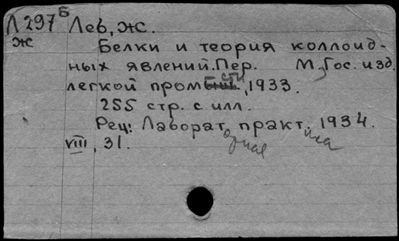 Л297Б Лев, Ж.
Ж
Белки и теория коллоид-
ных явлений. Пер. М, Гос. изд.
легкой пром-сти, 1933.
255 стр. с илл.
Рец: Лаборат. практ. 1934.
VIII, 31.